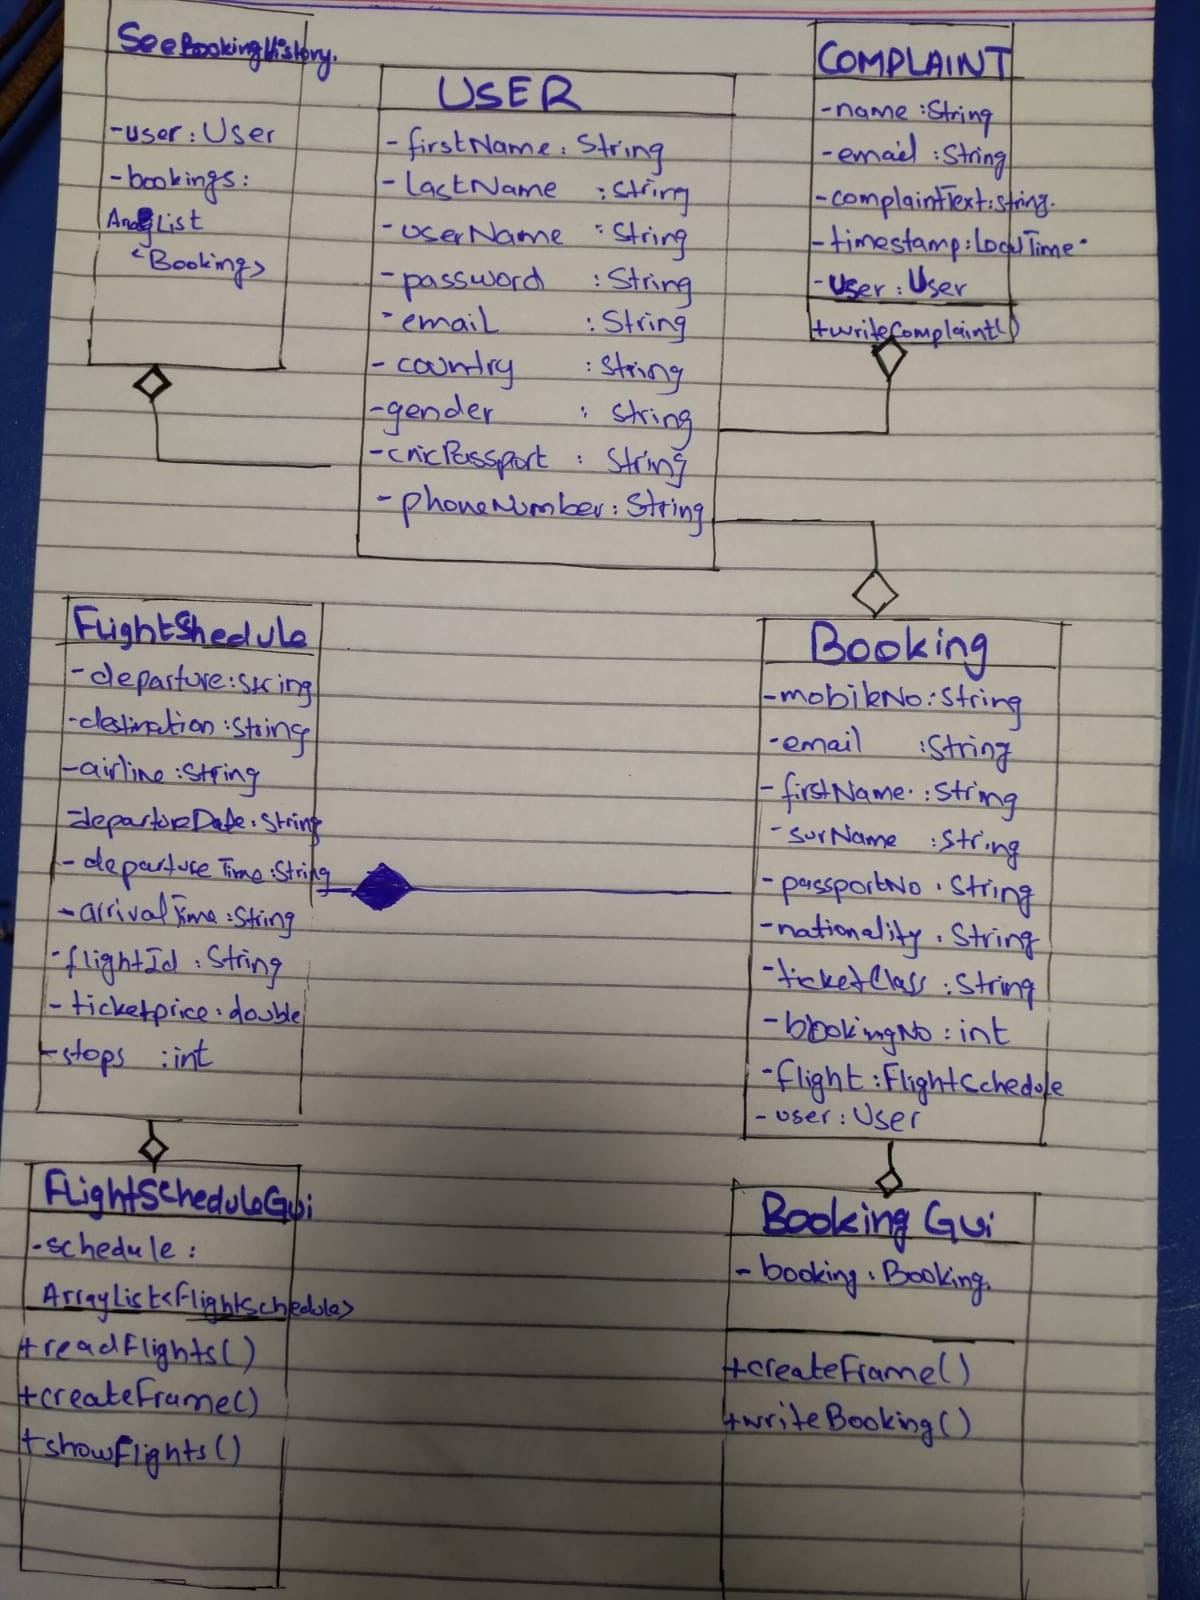 SeeBookingHistory.
-user: User
-bookings:
ArrayList
<Booking>
USER
-firstName: String
-lastName :String
-userName :String
-password :String
-email :String
-country :String
-gender : String
-cnicPassport : String
-phoneNumber: String
COMPLAINT
-name :String
-email :String
-complaintText:String.
-timestamp:LocalTime
-User: User
+writeComplaint()
FlightShedule
-departure:String
-destination:String
-airline:String
-departureDate:String
-departureTime:String
-arrivalTime:String
-flightId:String
-ticketprice:double
-stops :int
Booking
-mobileNo:String
-email :String
-firstName :String
-surName :String
-passportNo :String
-nationality :String
-ticketClass :String
-bookingNo:int
-flight:FlightSchedule
-user:User
FlightScheduleGui
-schedule:
ArrayList<FlightSchedule>
+readFlights()
+createFrame()
+showFlights()
Booking Gui
-booking:Booking.
+createFrame()
+writeBooking()